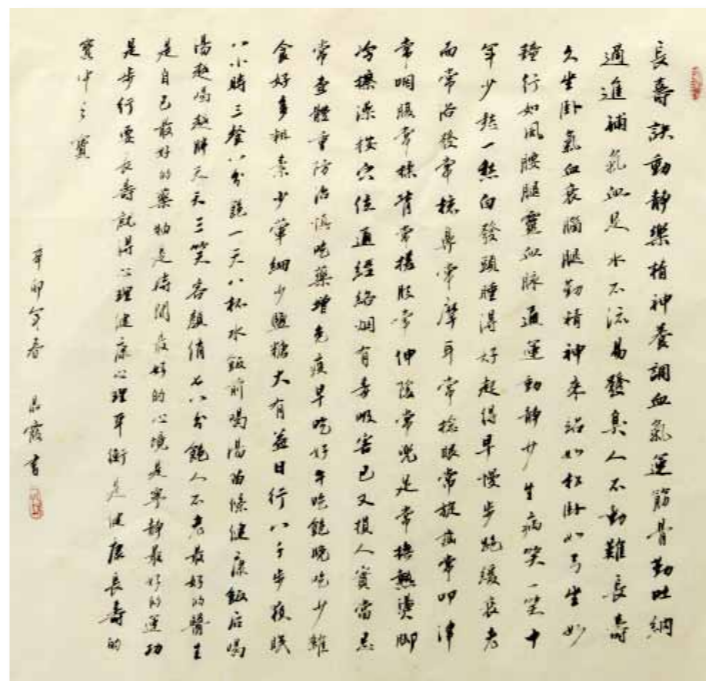 長壽訣動靜樂精神養調血氣運筋骨勤吐納
通進補氣血足水不流易發臭人不動難長壽
久坐臥氣血衰腦腿勤精神来站如松臥如弓坐如
鐘行如風腰腿靈血脉通運動靜少生病笑一笑十
年少愁一愁白發頭睡得好起得早慢步跑緩衰老
面常浴發常梳鼻常摩耳常捻眼常旋齒常叩津
常咽腹常揉背常肢常伸陰常兜足常熱燙脚
冷擦澡按穴位通經絡烟有毒吸害已又損人實當忌
常查體重防治慎吃藥增免疫早吃好午吃飽晚吃少雜
食好多粗素少葷細少鹽糖大有益日行八千步夜眠
八小時三餐八分飽一天八杯水飯前喝湯苗條健康飯后喝
湯越喝越胖天天三笑容顔俏七八分飽人不老最好的醫生
是自己最好的藥物是時間最好的心境是寧靜最好的運動
是步行要長壽就得心理健康心理平衡是健康長壽的
寶中之寶
辛卯年春 霞書